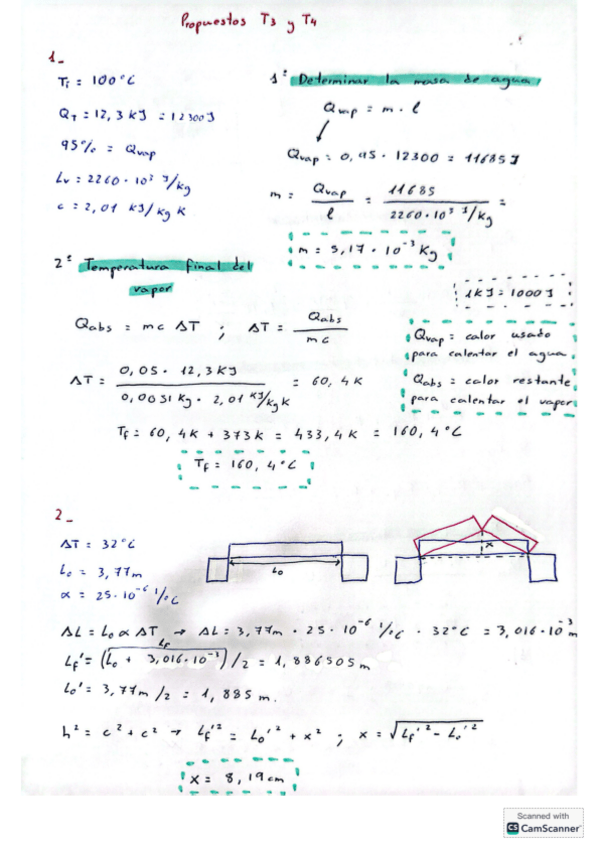 Propuestos T3 y T4
1_
Ti = 100°C
QT = 12,3 KJ = 12300J
95% = Qvap
Lv = 2260 · 10³ J/kg
c = 2,01 KJ/kg K
1º Determinar la masa de agua:
Qvap = m · l
Qvap = 0,95 · 12300 = 11685 J
m = Qvap / l = 11685 / 2260 · 10³ J/kg =
m = 5,17 · 10⁻³ Kg
2º Temperatura final del
vapor
Qabs = m c ΔT ; ΔT = Qabs / m c
1KJ = 1000J
Qvap = calor usado
para calentar el agua
Qabs = calor restante
para calentar el vapor
ΔT = 0,05 · 12,3 KJ / 0,0051 Kg · 2,01 KJ/Kg K = 60,4 K
Tf = 60,4K + 373K = 433,4K = 160,4°C
Tf = 160,4°C
2_
ΔT = 32°C
L₀ = 3,77m
α = 25·10⁻⁶ 1/°C
L₀
x
ΔL = L₀ α ΔT → ΔL = 3,77m · 25 · 10⁻⁶ 1/°C · 32°C = 3,016·10⁻³ m
Lf
Lf' = (L₀ + 3,016·10⁻³)/2 = 1,886505 m
L₀' = 3,77m/2 = 1,885 m.
h² = c² + c² → Lf'² = L₀'² + x² ; x = √Lf'² - L₀'²
x = 8,19cm
Scanned with
CS CamScanner